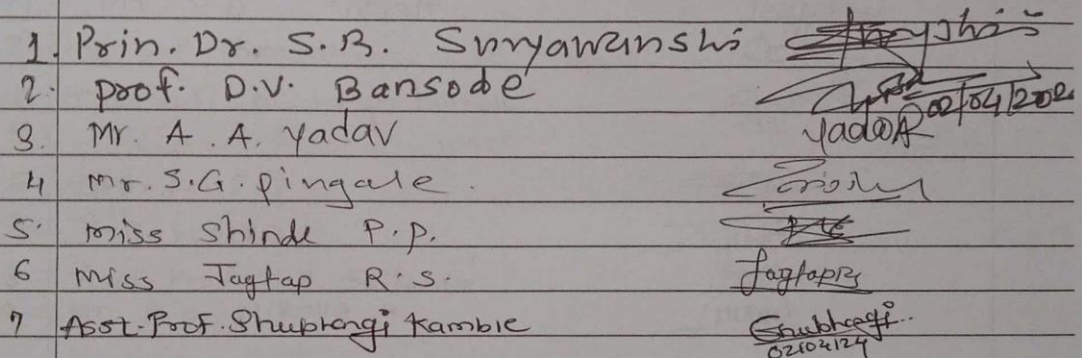 1. Prin. Dr. S.B. Suryawanshi
2. Prof. D.V. Bansode 02/04/202
3. Mr. A.A. Yadav YadavA
4 Mr. S.G. Pingale.
5. Miss Shinde P.P.
6 Miss Jagtap R.S. JagtapRS
7 Asst. Prof. Shubhangi Kamble Shubhangi..
02/04/24